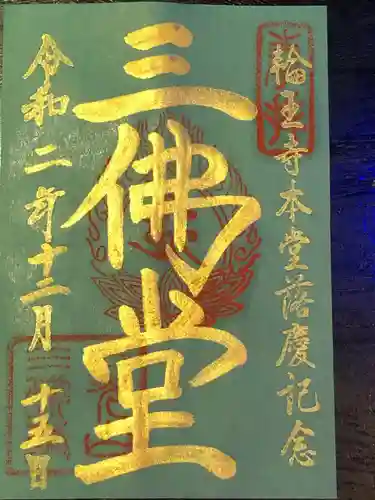 輪王寺本堂落慶記念
三佛堂
令和二年十二月十五日